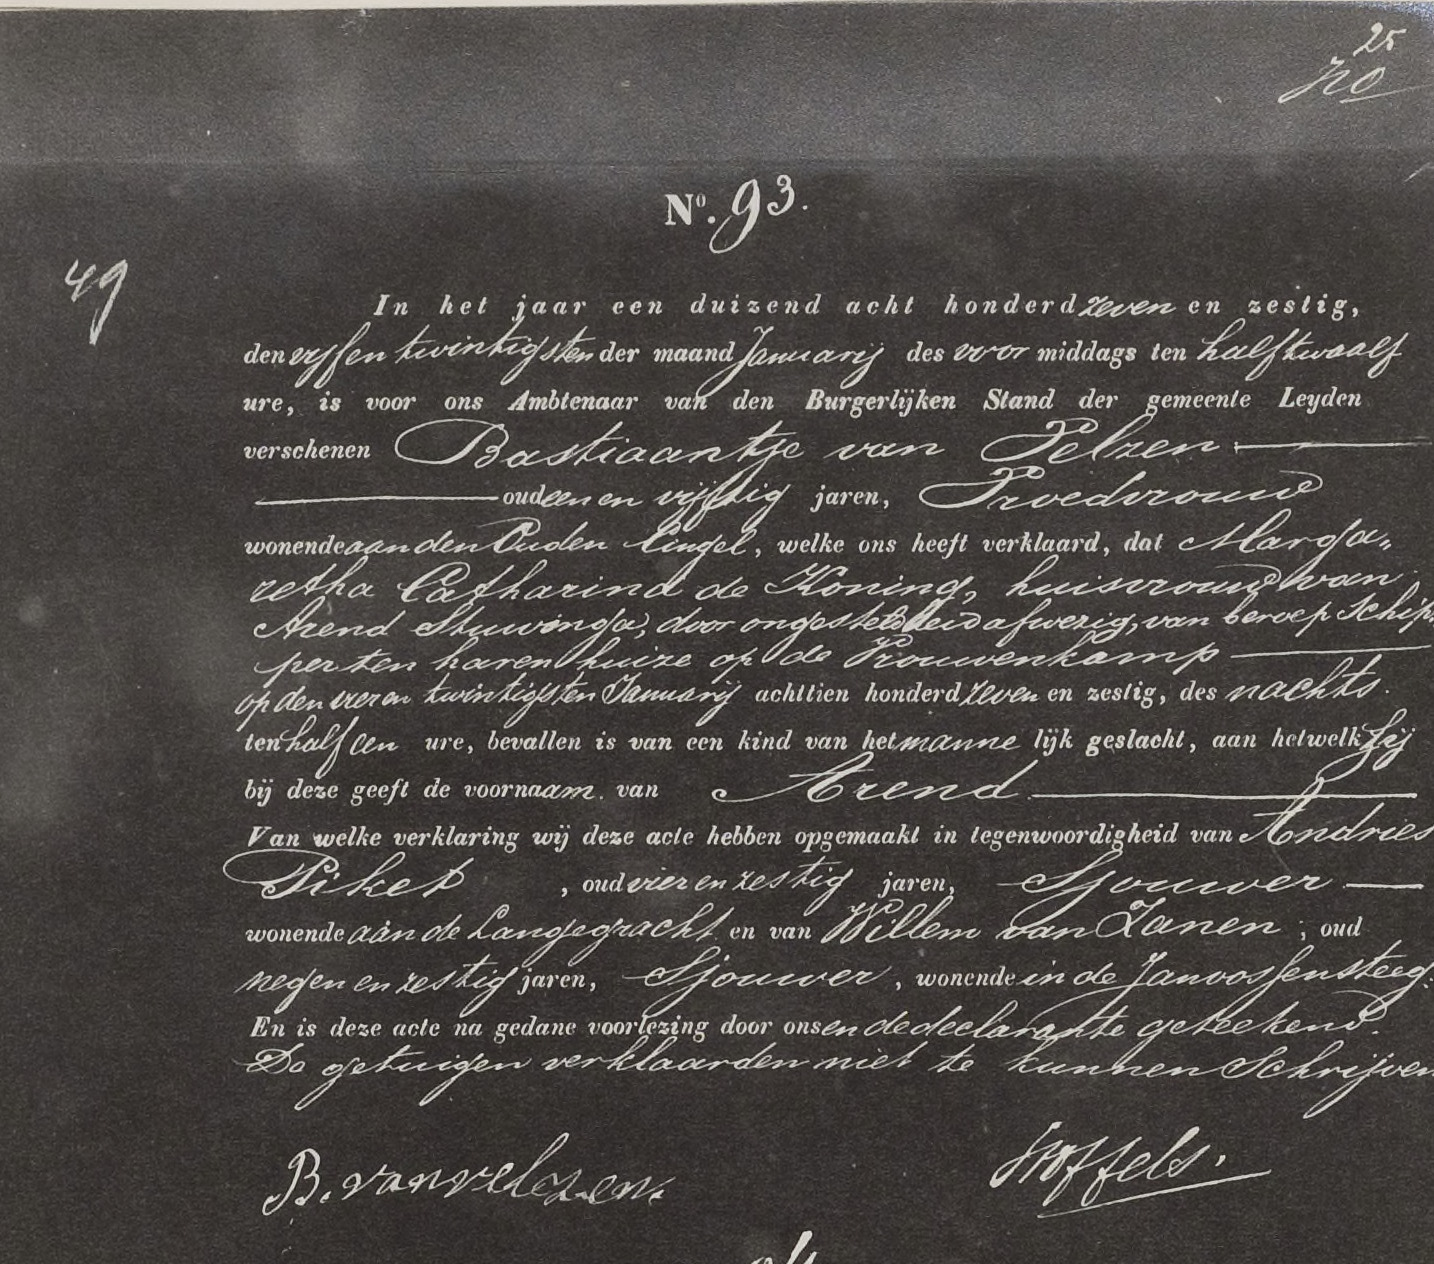 25
No. 93.
49
In het jaar een duizend acht honderd zeven en zestig,
den vyf en twintigsten der maand Januarij des voor middags ten half twaalf
ure, is voor ons Ambtenaar van den Burgerlijken Stand der gemeente Leyden
verschenen Bastiaantje van Velzen
oud een en vijftig jaren, Vroedvrouw
wonende aan den Ouden Cingel, welke ons heeft verklaard, dat Marga„
retha Catharina de Koning, huisvrouw van
Arend Stuvinga, door ongesteldheid afwezig, van beroep Schip
per ten haren huize op de Vrouwenkamp
op den vier en twintigsten Januarij achttien honderd zeven en zestig, des nachts
ten half een ure, bevallen is van een kind van het manne lijk geslacht, aan hetwelk Zij
bij deze geeft de voornaam. van Arend
Van welke verklaring wij deze acte hebben opgemaakt in tegenwoordigheid van Andries
Piket, oud vier en zestig jaren, Sjouwer
wonende aan de Langegracht en van Willem van Zanen, oud
negen en zestig jaren, Sjouwer, wonende in de Janvossensteeg.
En is deze acte na gedane voorlezing door ons en de declarante geteekend.
De getuigen verklaarden niet te kunnen Schrijven
B. van velzen.
Stoffels.